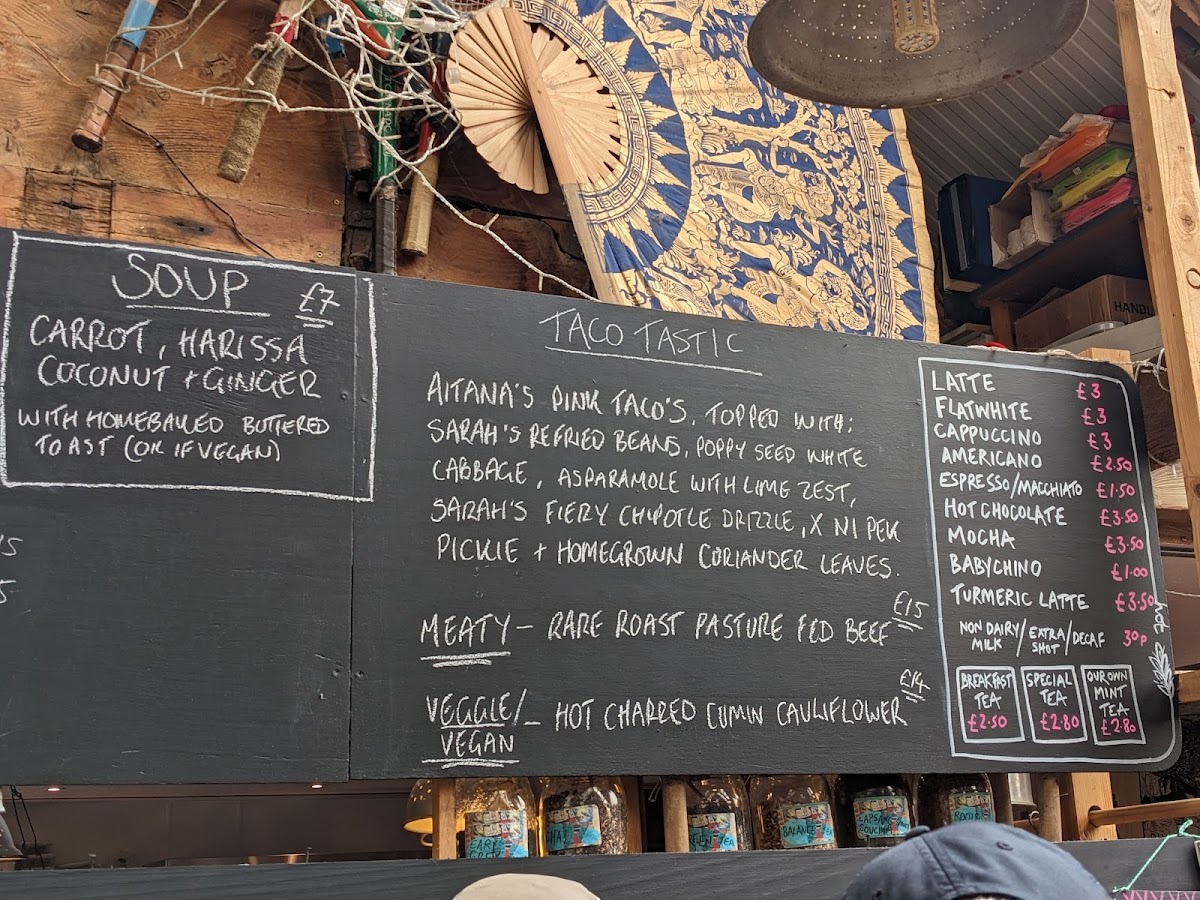 SOUP
£7
CARROT, HARISSA
COCONUT + GINGER
WITH HOMEBAKED BUTTERED
TOAST (OR IF VEGAN)
TACO TASTIC
AITANA'S PINK TACO'S, TOPPED WITH:
SARAH'S REFRIED BEANS, POPPY SEED WHITE
CABBAGE, ASPARAMOLE WITH LIME ZEST,
SARAH'S FIERY CHIPOTLE DRIZZLE, X NI PEK
PICKLE + HOMEGROWN CORIANDER LEAVES.
£15
MEATY - RARE ROAST PASTURE FED BEEF
£14
VEGGIE/- HOT CHARRED CUMIN CAULIFLOWER
VEGAN
LATTE £3
FLATWHITE £3
CAPPUCCINO £3
AMERICANO £2.50
ESPRESSO/MACCHIATO £1.50
HOT CHOCOLATE £3.50
MOCHA £3.50
BABYCHINO £1.00
TURMERIC LATTE £3.50
NON DAIRY MILK/EXTRA SHOT/DECAF 30p
BREAKFAST
TEA
£2.50
SPECIAL
TEA
£2.80
OUR OWN
MINT
TEA
£2.80
HAND
BALANCE
LAPSANG
SOUCHONG